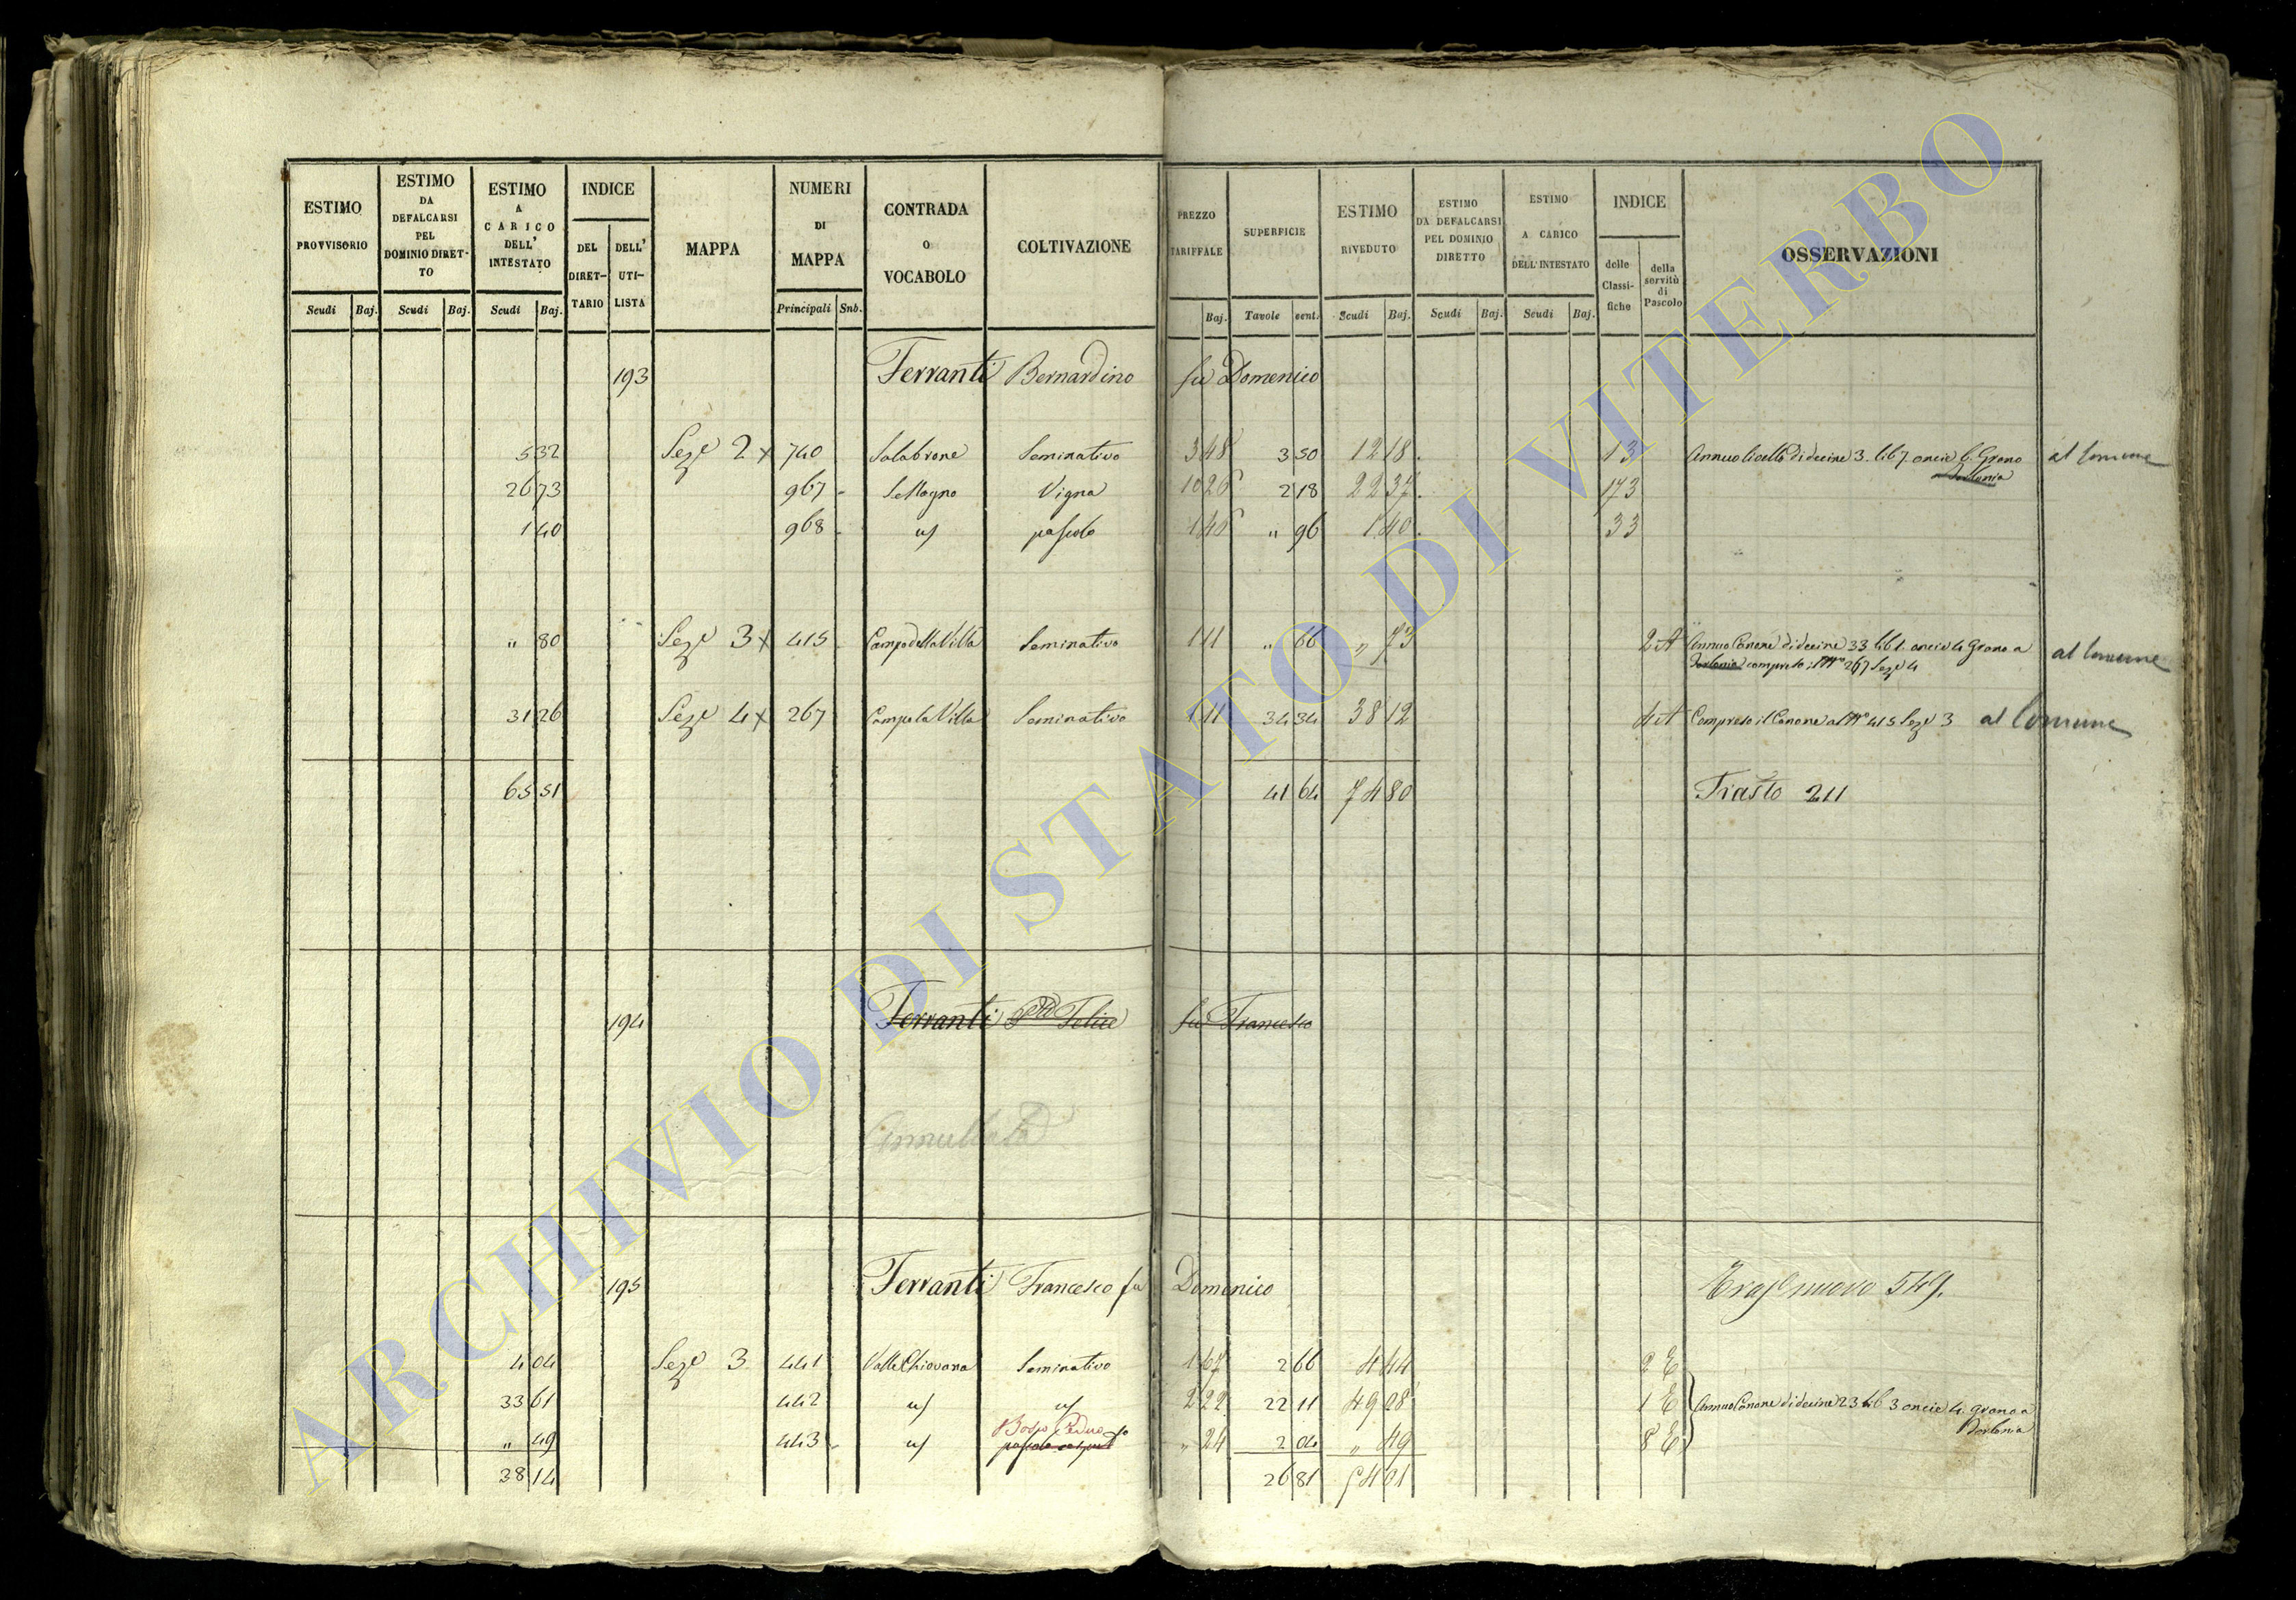 ESTIMO PROVVISORIO
ESTIMO DA DEFALCARSI PEL DOMINIO DIRETTO
ESTIMO A CARICO DELL' INTESTATO
INDICE
DEL DIRET-TARIO
DELL' UTI-LISTA
MAPPA
NUMERI DI MAPPA
CONTRADA O VOCABOLO
COLTIVAZIONE
PREZZO TARIFFALE
SUPERFICIE
ESTIMO RIVEDUTO
ESTIMO DA DEFALCARSI PEL DOMINIO DIRETTO
ESTIMO A CARICO DELL' INTESTATO
INDICE
delle Classi-fiche
della servitù di Pascolo
OSSERVAZIONI
Scudi Baj. Scudi Baj. Scudi Baj. Principali Sub. Baj. Tavole cent. Scudi Baj. Scudi Baj. Scudi Baj.
193 Ferranti Bernardino fu Domenico
5 32 Seze 2 x 740 Salabrone Seminativo 3 48 3 50 12 18 13 Annuo 3. lib 7. oncie 6. Grano al Comune
26 73 967 Vigna 10 26 2 18 22 37 173
1 40 968 pascolo 1 46 " 96 1 40 33
" 80 Seze 3 x 415 Campo della Villa Seminativo 1 11 " 66 " 73 2 A Annuo Canone di decine 33 lib 1. oncie 4 Grano a al Comune
compreso il No 267 Seze 4
31 26 Seze 4 x 267 Campo la Villa Seminativo 1 11 34 34 38 12 4 A Compreso il Canone al No 415 Seze 3 al Comune
65 51 41 64 74 80 Trasto 211
194 Ferranti Felice fu Francesco
Annullata
195 Ferranti Francesco fu Domenico nuovo 549.
4 04 Seze 3 441 Valle Chiovana Seminativo 1 67 2 66 4 44 2 E
33 61 442 2 22 22 11 49 08 1 E Annuo Canone di decine 23 lib 3 oncie 4. grano a
" 49 443 Bosco Ceduo " 24 2 04 " 49 8 E
38 14 26 81 54 01
ARCHIVIO DI STATO DI VITERBO